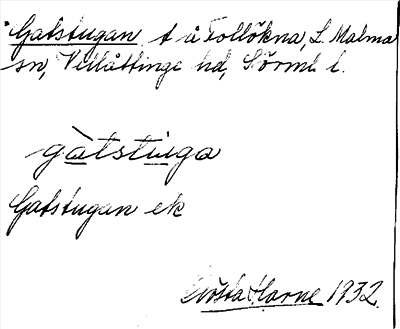 Gatstugan t å Follökna, L. Malma
sn, Villåttinge hd, Sörml. l.
gàtstuga
Gatstugan ek
Gösta Harne 1932.